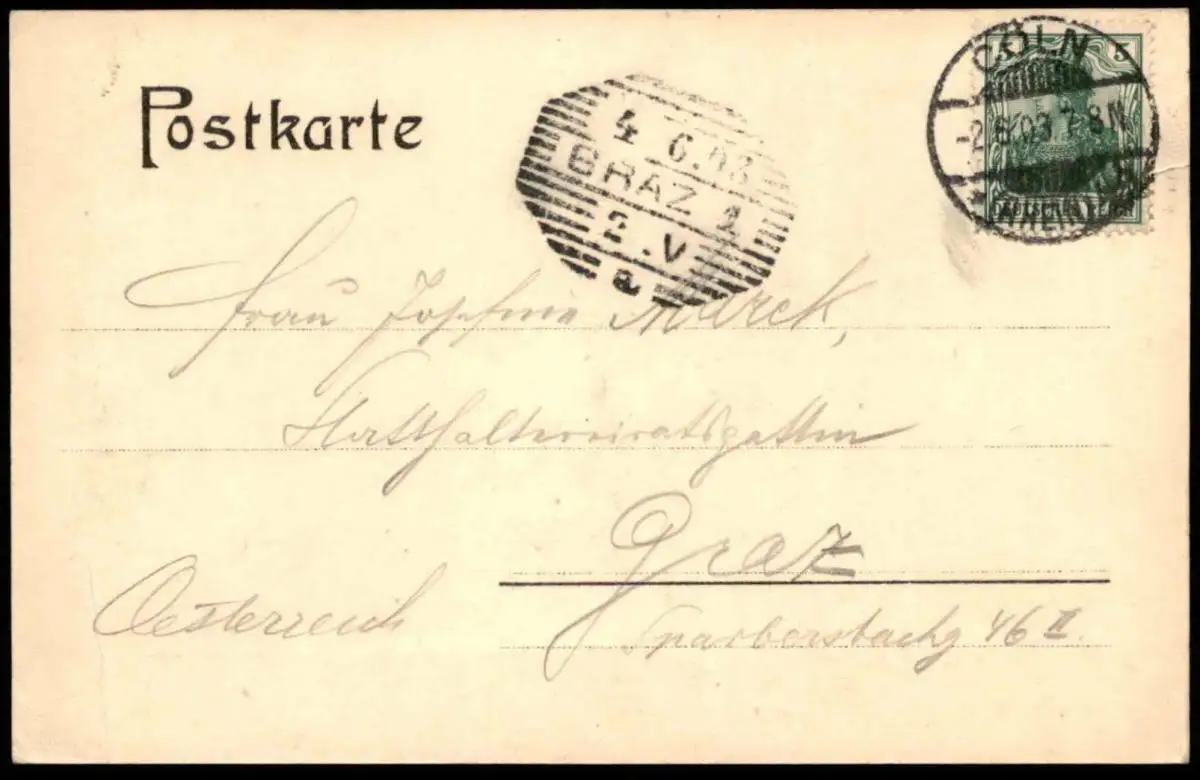 Postkarte
CÖLN
-2.6.03. 7-8N
* (RHEIN) *
5 5
DEUTSCHES REICH
4 6.03
GRAZ 1
2 . V
a
Frau Josefine Merck,
Statthaltereiratsgattin
Graz
Oesterreich
Sparbersbachg 46 II.